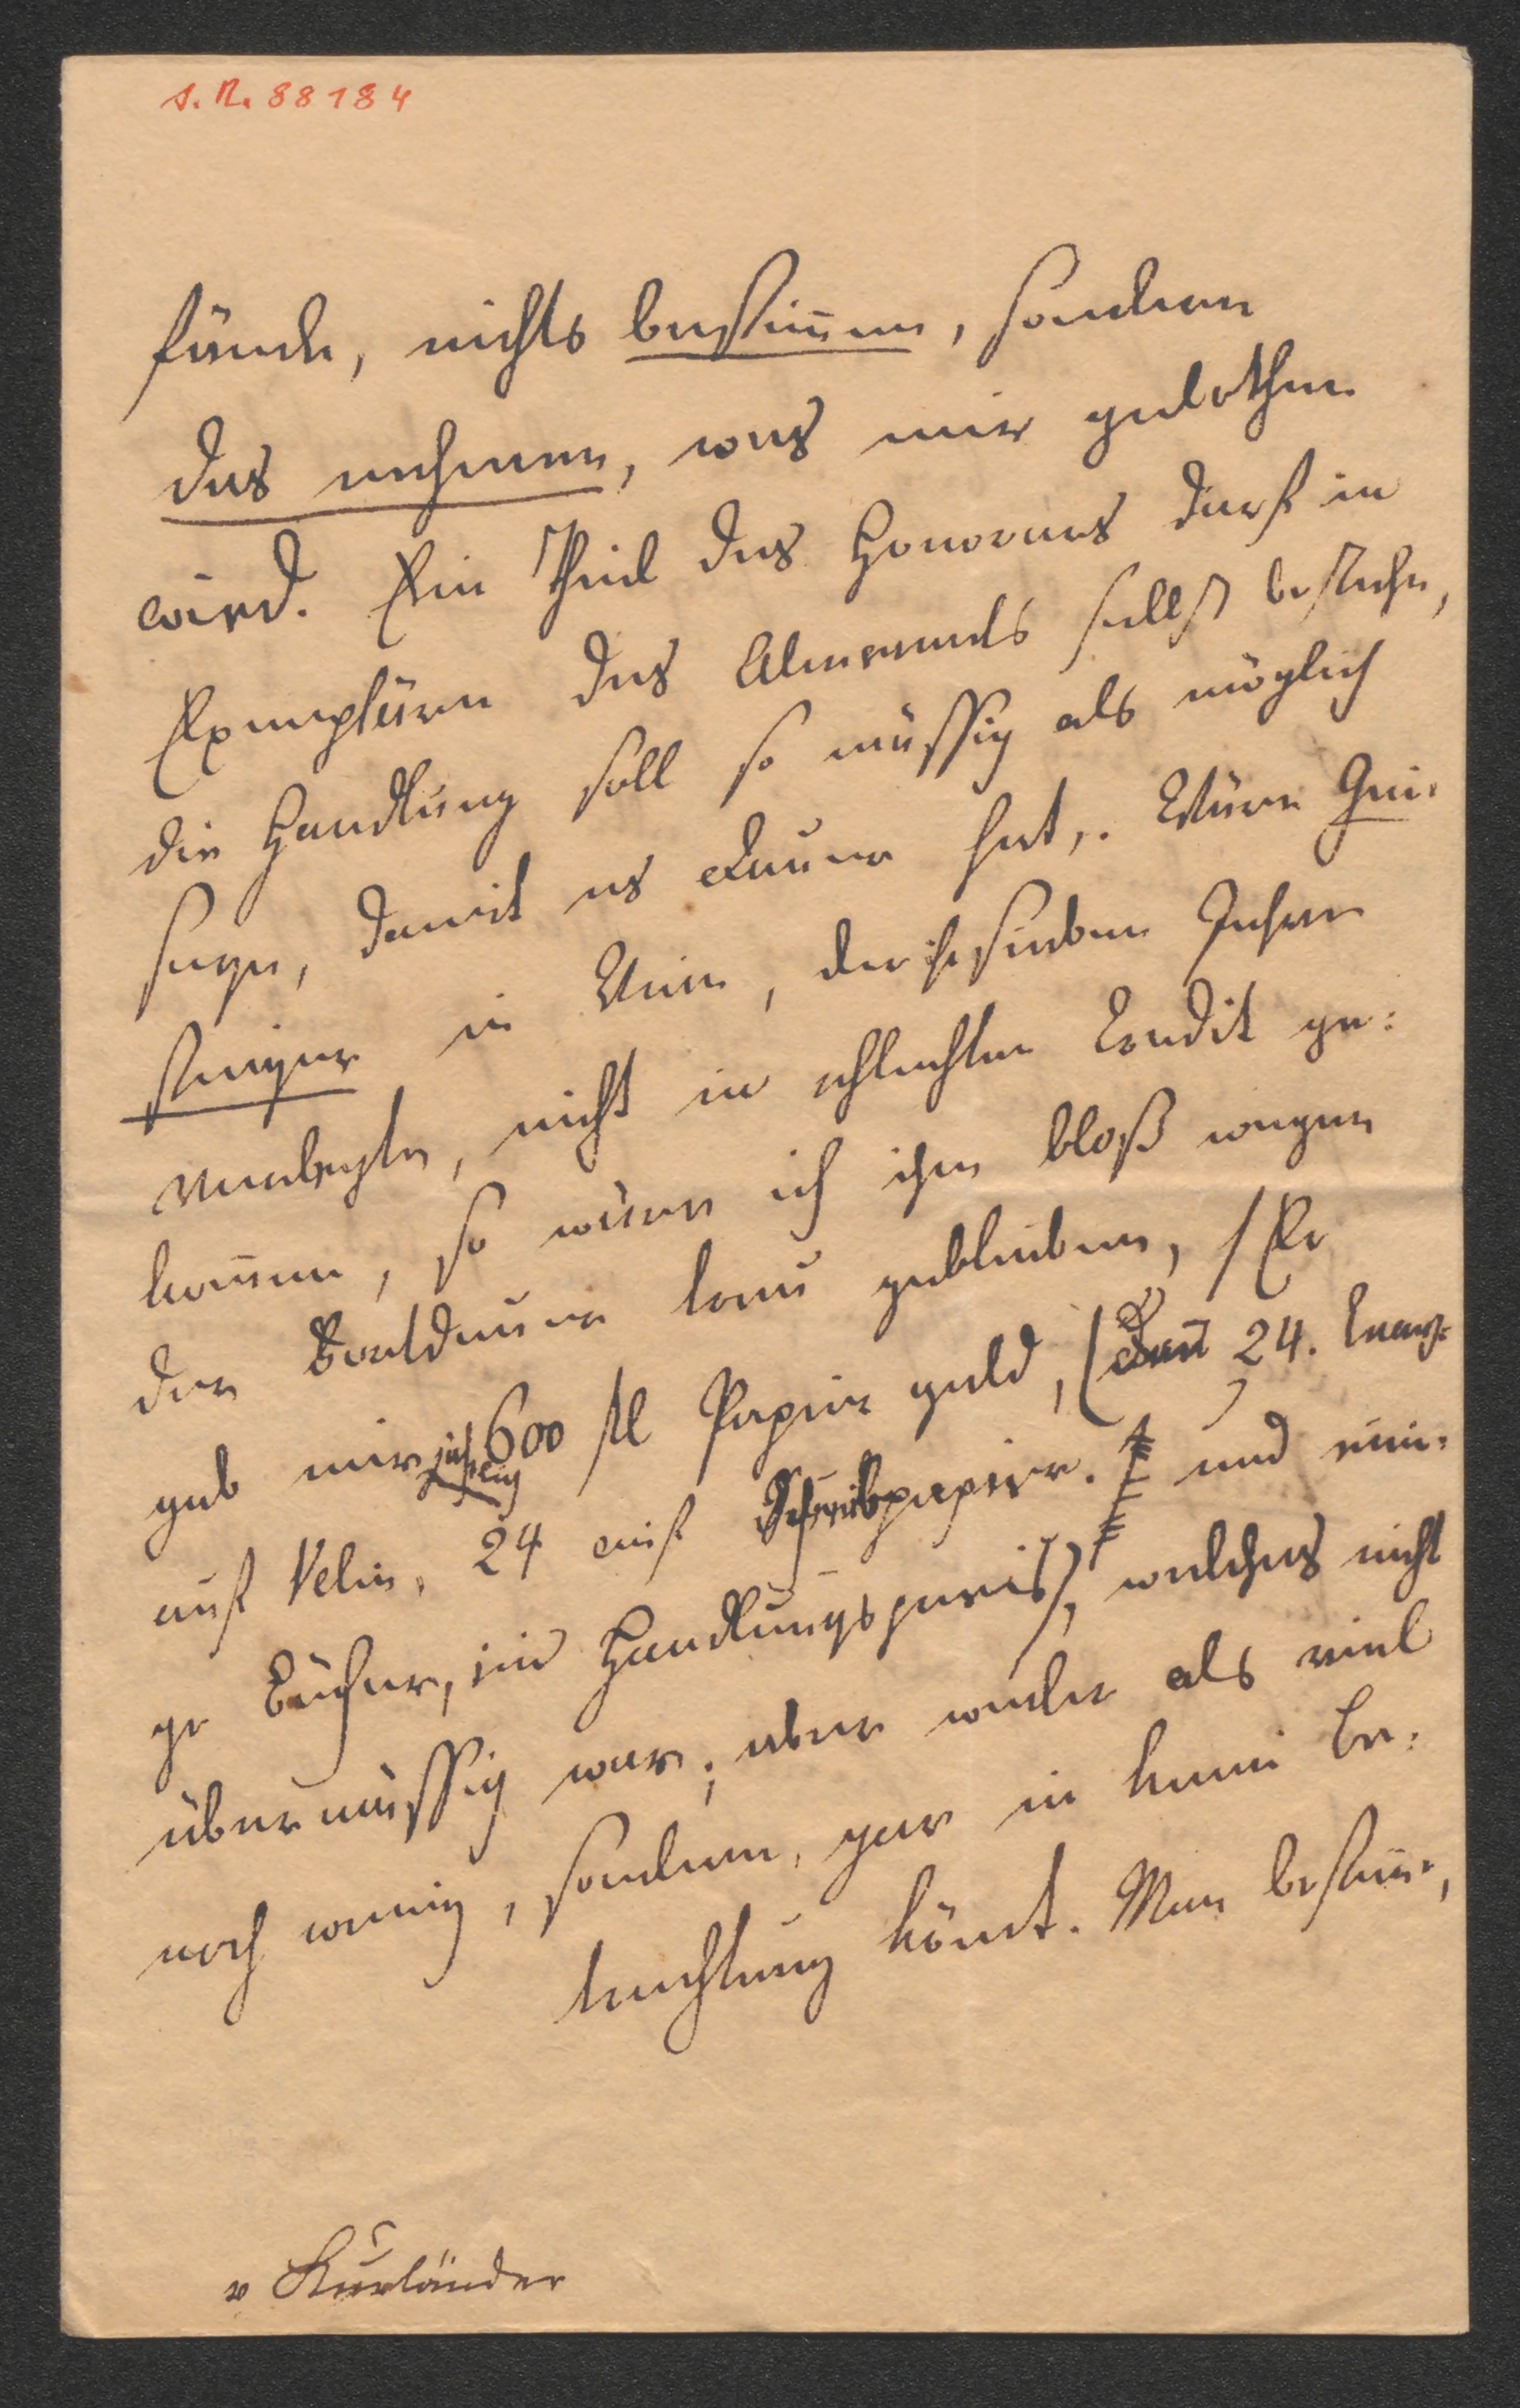 I. N. 88184
fände, nichts bestim̄en, sondern
das nehmen, was mir gebothen
wird. Ein Theil des Honorars darf in
Exemplären des Almanachs selbst bestehen,
die Handlung soll so mässig als möglich
seyn, damit es Dauer hat,. Wäre Gei-
stinger in Wien, der es sieben Jahre
verlegte, nicht in schlechten Credit ge-
kom̄en, so wäre ich ihm bloß wegen
der Fortdauer treu geblieben, / Er
gab mir jährlig 600 fl Papier geld, (dan̄ 24. Exempl.
auf Velin, 24 auf Schreibpapier. und eini-
ge Bücher, im Handlungspreis), welches nicht
übermässig war; aber weder als viel
noch wenig, sondern, gar in keine Be-
trachtung köm̄t. Man bestim̄e,
v Kurländer